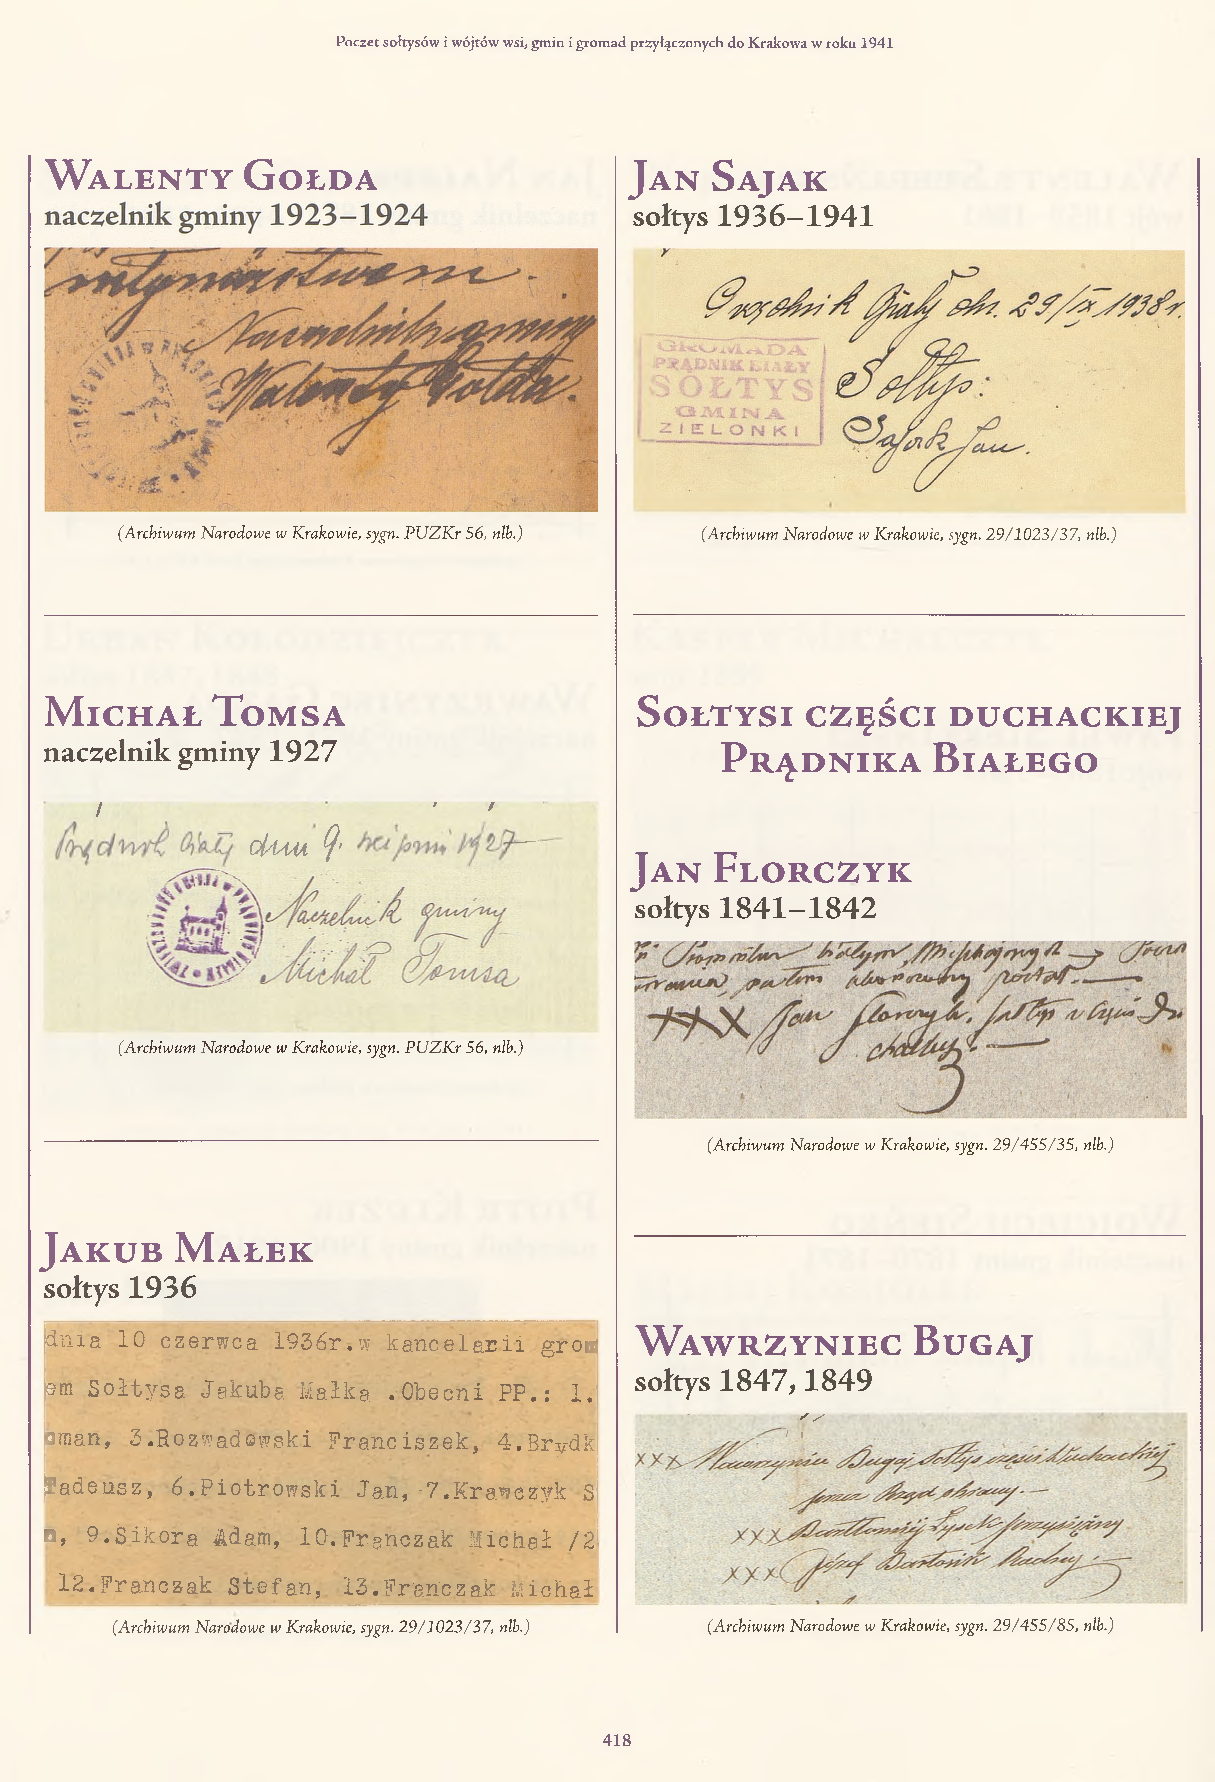 Poczet sołtysów i wójtów wsi, gmin i gromad przyłączonych do Krakowa w roku 1941
Walenty Gołda
naczelnik gminy 1923–1924
młynarstwem.
Naczelnik gminy
Walenty Gołda.
(Archiwum Narodowe w Krakowie, sygn. PUZKr 56, nlb.)
Michał Tomsa
naczelnik gminy 1927
Prądnik Biały dnia 9. sierpnia 1927
Naczelnik gminy
Michał Tomsa
(Archiwum Narodowe w Krakowie, sygn. PUZKr 56, nlb.)
Jakub Małek
sołtys 1936
dnia 10 czerwca 1936r.w kancelarii grom
em Sołtysa Jakuba Małka .Obecni PP.: 1.
oman, 3.Rozwadowski Franciszek, 4.Brydk
Tadeusz, 6.Piotrowski Jan, 7.Krawczyk S
n, 9.Sikora Adam, 10.Franczak Michał /2
12.Franczak Stefan, 13.Franczak Michał
(Archiwum Narodowe w Krakowie, sygn. 29/1023/37, nlb.)
Jan Sajak
sołtys 1936–1941
Prądnik Biały dn. 29/IX 1938r.
GROMADA
PRĄDNIK BIAŁY
SOŁTYS
GMINA
ZIELONKI
Sołtys:
Sajak Jan.
(Archiwum Narodowe w Krakowie, sygn. 29/1023/37, nlb.)
Sołtysi części duchackiej
Prądnika Białego
Jan Florczyk
sołtys 1841–1842
białym
XXX Jan Florczyk, sołtys z części Du
chackiej.
(Archiwum Narodowe w Krakowie, sygn. 29/455/35, nlb.)
Wawrzyniec Bugaj
sołtys 1847, 1849
XXX Wawrzyniec Bugaj sołtys części Duchackiej
przez Urząd obrany.
XXX Bartłomiej Łysek przysiężny
XXX Józef Radny
(Archiwum Narodowe w Krakowie, sygn. 29/455/85, nlb.)
418